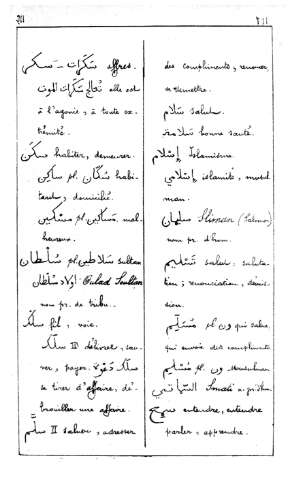 ٢١١
سكرات - سكر affres.
تعالج سكرات الموت elle est
à l'agonie, à toute ex-
trémité.
سكن habiter, demeurer.
ساكن pl. سكّان habi-
tant, domicilié.
مسكين pl. مساكين mal-
heureux.
سلطان pl. سلاطين sultan
اولاد سلطان Oulad Soultan
nom pr. de tribu.
سلك fil, voie.
سلّك II délivrer, sau-
ver, payer.
se tirer d'affaire, dé-
brouiller une affaire.
سلّم II saluer, adresser
des compliments, renoncer,
se démettre.
سلام salut.
سلامة bonne santé.
إسلام Islamisme.
إسلامي islamité, musul-
man.
سليمان Sliman (Salomon)
nom pr. d'hom.
تسليم salut, saluta-
tion; renonciation, démis-
sion.
مسلّم pl. ون qui salue,
qui envoie des compliments
مسلم pl. ون Musulman
Somali
سمع entendre, entendre
parler, apprendre.